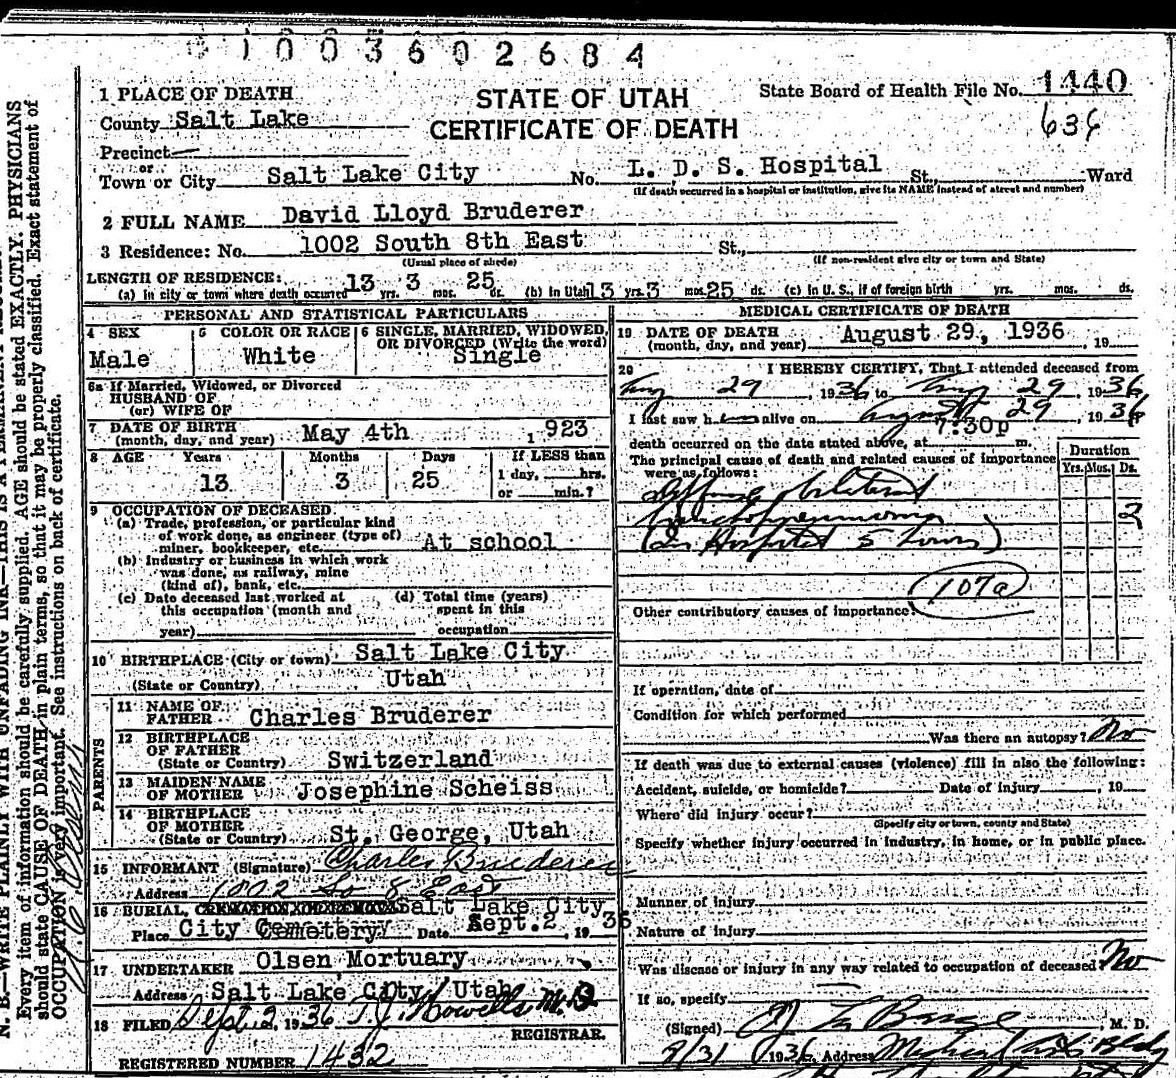 1003602684
1 PLACE OF DEATH
STATE OF UTAH
State Board of Health File No. 1440
County Salt Lake
CERTIFICATE OF DEATH
636
Precinct —
or
Town or City Salt Lake City No. L. D. S. Hospital St., Ward
(If death occurred in a hospital or institution, give its NAME instead of street and number)
2 FULL NAME David Lloyd Bruderer
3 Residence: No. 1002 South 8th East St.,
(Usual place of abode) (If non-resident give city or town and State)
LENGTH OF RESIDENCE:
(a) In city or town where death occurred 13 yrs. 3 mos. 25 ds. (b) In Utah 13 yrs. 3 mos. 25 ds. (c) In U. S., if of foreign birth yrs. mos. ds.
PERSONAL AND STATISTICAL PARTICULARS
4 SEX
Male
5 COLOR OR RACE
White
6 SINGLE, MARRIED, WIDOWED,
OR DIVORCED (Write the word)
Single
6a If Married, Widowed, or Divorced
HUSBAND OF
(or) WIFE OF
7 DATE OF BIRTH
(month, day, and year) May 4th 1923
8 AGE Years Months Days If LESS than
13 3 25 1 day, hrs.
or min.?
9 OCCUPATION OF DECEASED
(a) Trade, profession, or particular kind
of work done, as engineer (type of)
miner, bookkeeper, etc. At school
(b) Industry or business in which work
was done, as railway, mine
(kind of), bank, etc.
(c) Date deceased last worked at
this occupation (month and
year)
(d) Total time (years)
spent in this
occupation
10 BIRTHPLACE (City or town) Salt Lake City
(State or Country) Utah
PARENTS
11 NAME OF
FATHER Charles Bruderer
12 BIRTHPLACE
OF FATHER
(State or Country) Switzerland
13 MAIDEN NAME
OF MOTHER Josephine Scheiss
14 BIRTHPLACE
OF MOTHER
(State or Country) St. George, Utah
15 INFORMANT (Signature) Charles Bruderer
Address 1002 So 8 East
16 BURIAL, CREMATION, OR REMOVAL Salt Lake City
Place City Cemetery Date Sept. 2, 1936
17 UNDERTAKER Olsen Mortuary
Address Salt Lake City Utah
18 FILED Sept 2, 1936 T.J. Howells M.D
REGISTRAR.
REGISTERED NUMBER 1432
MEDICAL CERTIFICATE OF DEATH
19 DATE OF DEATH
(month, day, and year) August 29, 1936, 19
20 I HEREBY CERTIFY, That I attended deceased from
Aug 29, 1936 to Aug 29, 1936
I last saw him alive on August 29, 1936
7:30p
death occurred on the date stated above, at m.
The principal cause of death and related causes of importance
were as follows:
Duration
Yrs. Mos. Ds.
Diffuse bilateral
bronchopneumonia 2
(In Hospital 5 hours)
107a
Other contributory causes of importance:
If operation, date of
Condition for which performed
Was there an autopsy? No
If death was due to external causes (violence) fill in also the following:
Accident, suicide, or homicide? Date of injury , 19
Where did injury occur?
(Specify city or town, county and State)
Specify whether injury occurred in industry, in home, or in public place.
Manner of injury
Nature of injury
Was disease or injury in any way related to occupation of deceased No
If so, specify
(Signed) M. D.
8/31 1936, Address Medical Arts Bldg
N. B.—WRITE PLAINLY WITH UNFADING INK—THIS IS A PERMANENT
Every item of information should be carefully supplied. AGE should be stated EXACTLY. PHYSICIANS
should state CAUSE OF DEATH in plain terms, so that it may be properly classified. Exact statement of
OCCUPATION is very important. See instructions on back of certificate.